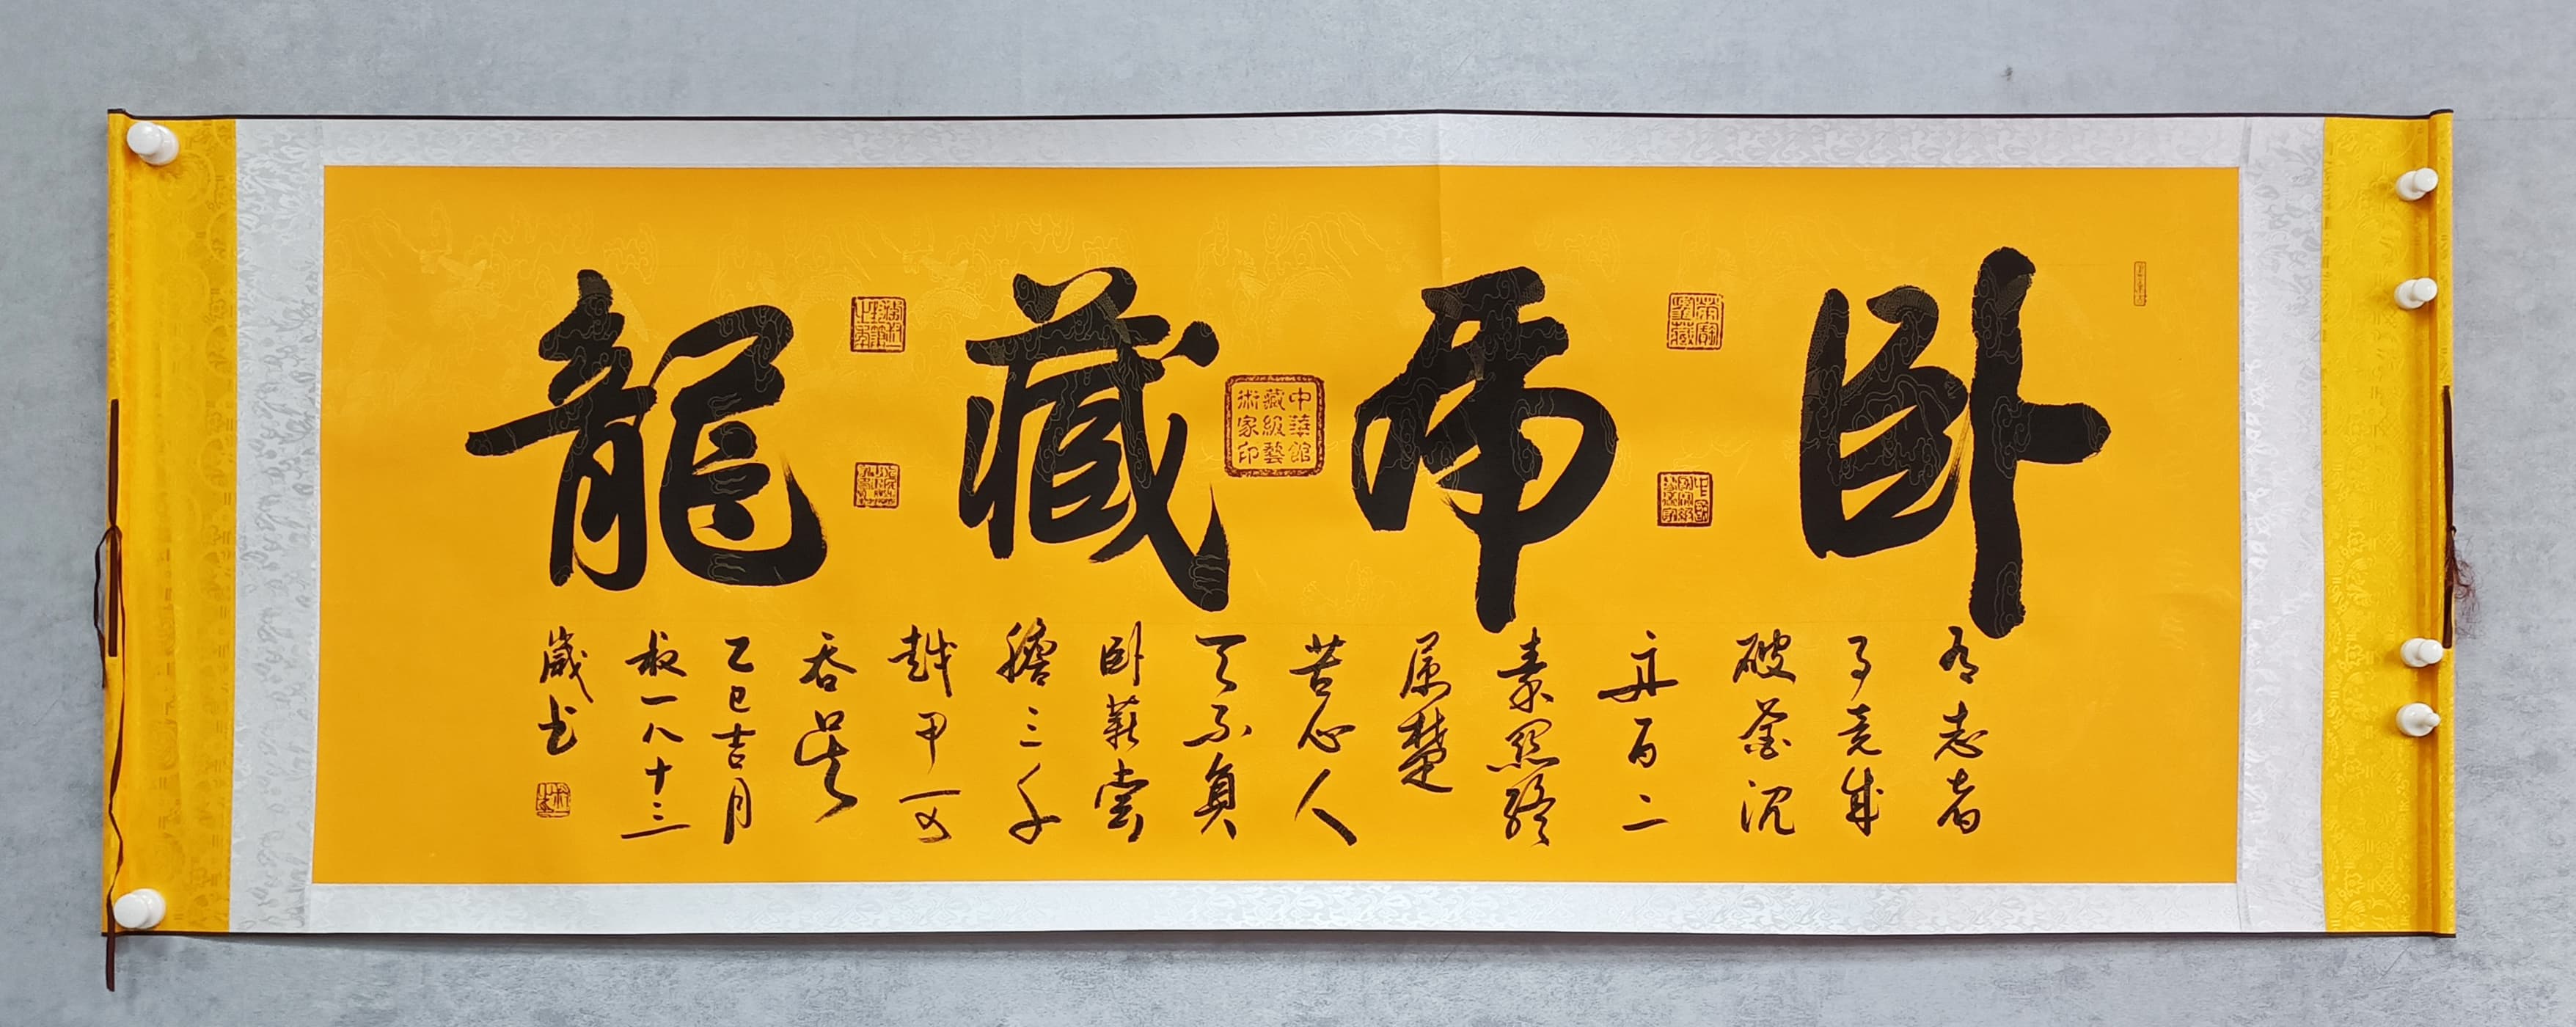 卧虎藏龍
中華館
藏級藝
術家印
有志者
事竟成
破釜沉
舟百二
秦關終
屬楚
苦心人
天不負
卧薪嘗
膽三千
越甲可
吞吳
乙巳吉月
一八十三
歲书